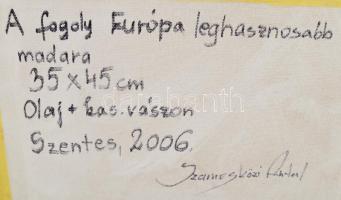 A fogoly Európa leghasznosabb
madara
35x45cm
Olaj + kas. vászon
Szentes, 2006.
Szamosközi Antal